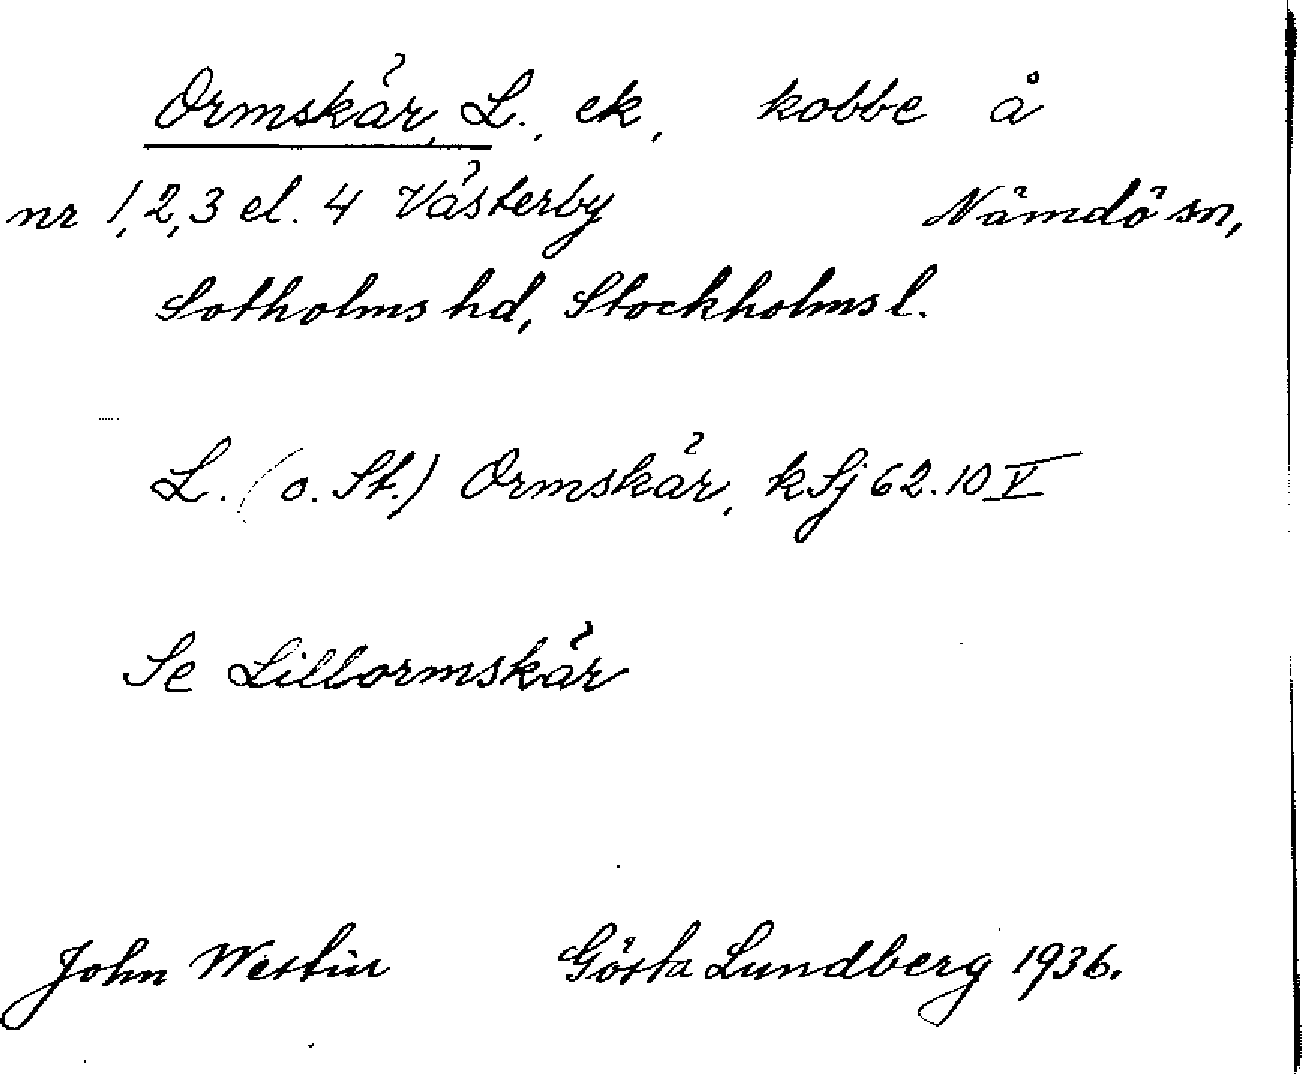 Ormskär, L., ek, kobbe å
nr 1,2,3 el. 4 Västerby Nämdö sn,
Sotholms hd, Stockholms l.
L. (o. St.) Ormskär, k Sj 62.10 V
Se Lillormskär
John Westin Gösta Lundberg 1936.